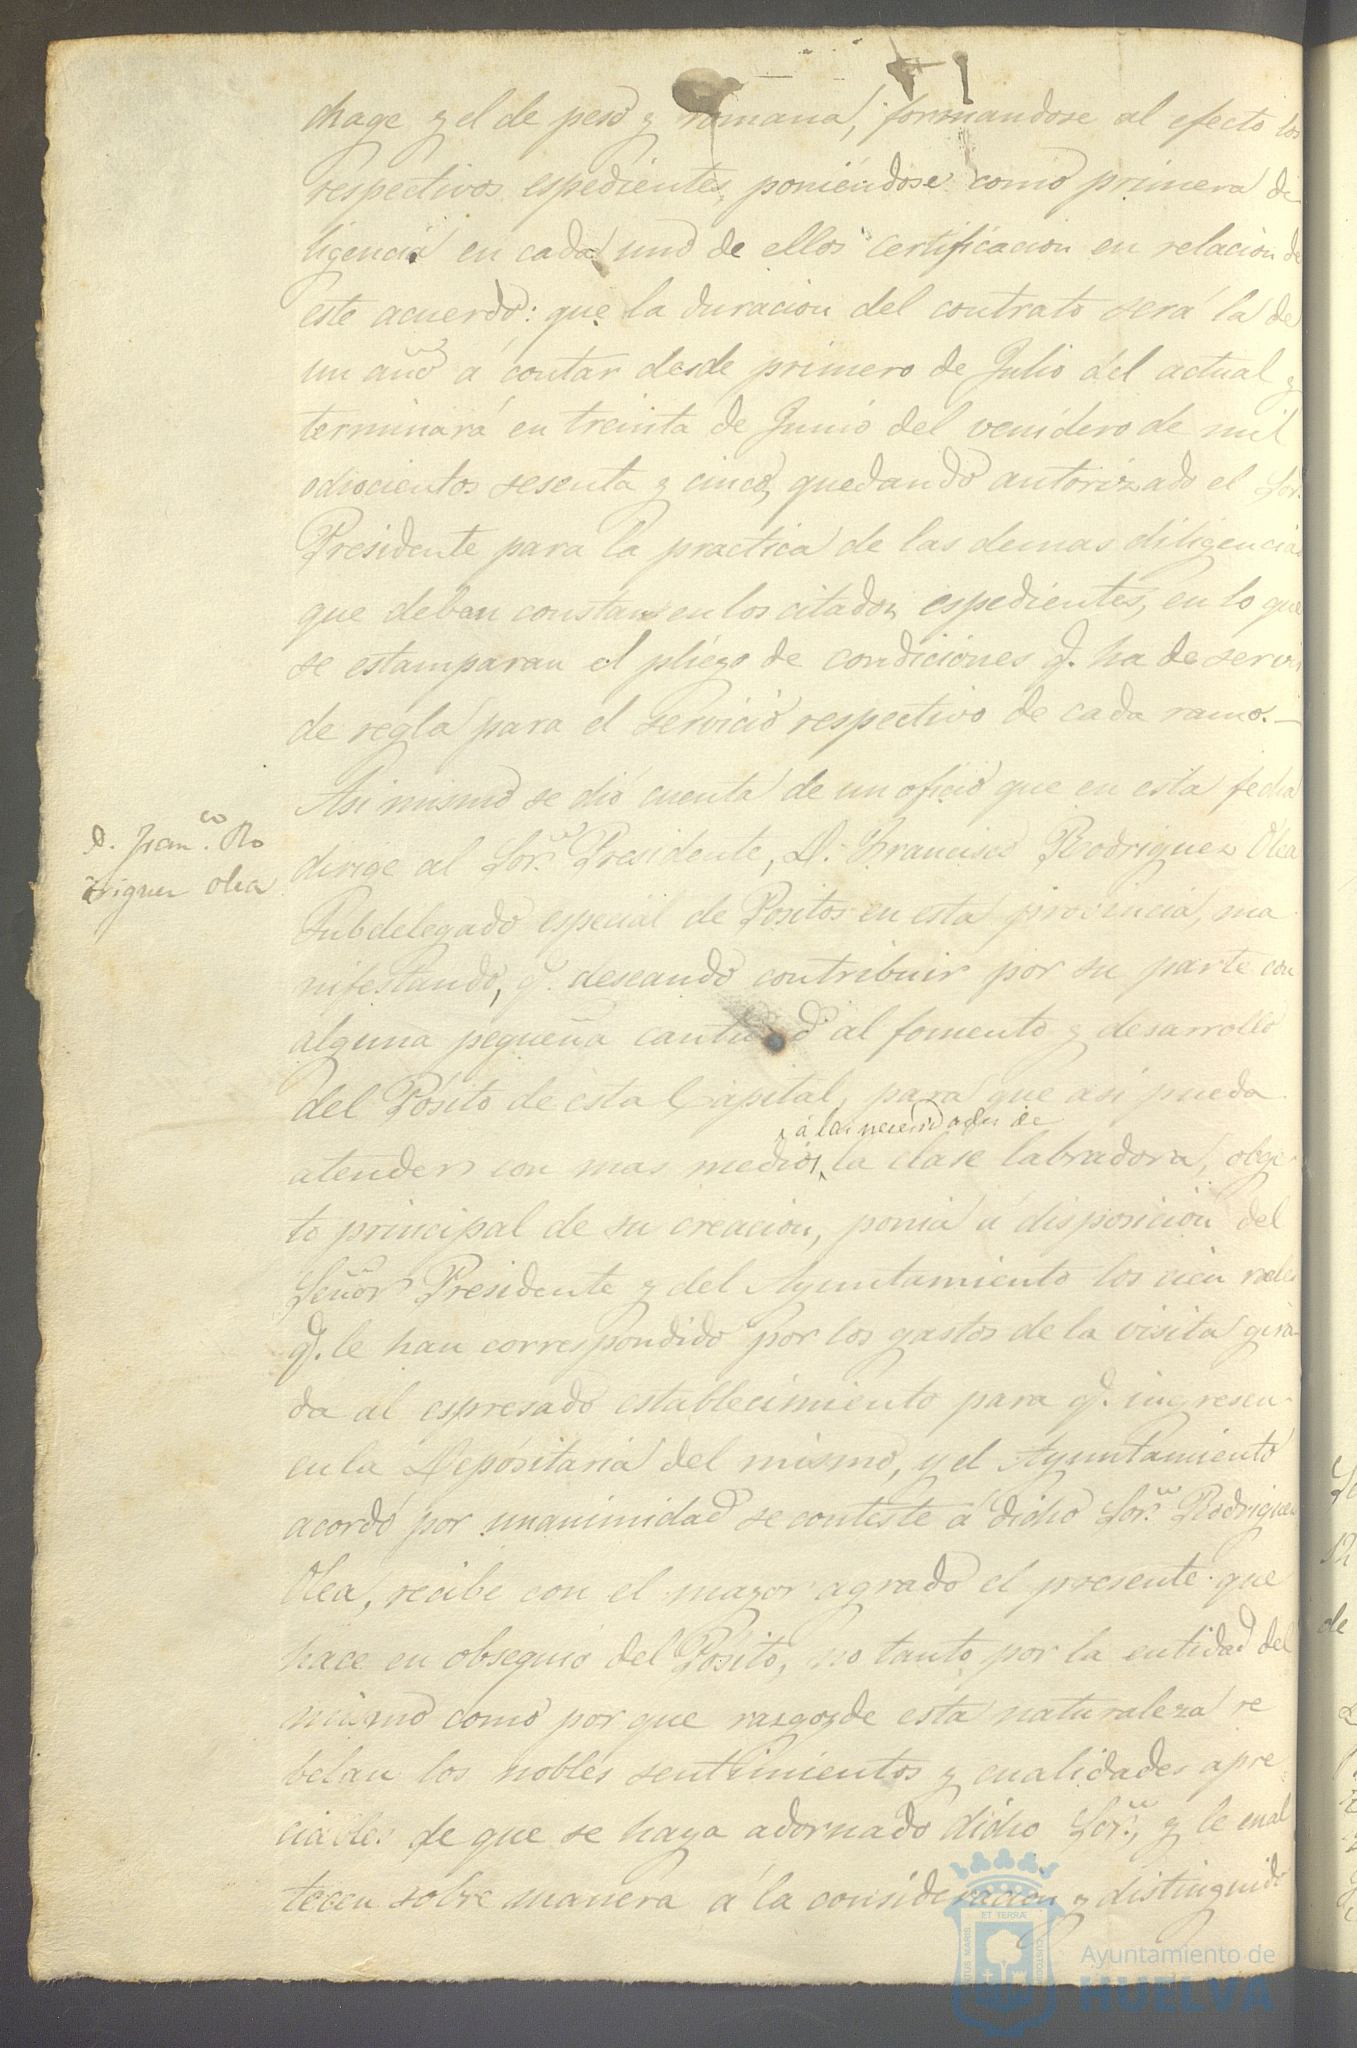 chage y el de peso y romana, formandose al efecto los
respectivos espedientes, poniéndose como primera di
ligencia en cada uno de ellos certificacion en relacion de
este acuerdo: que la duracion del contrato será la de
un año á contar desde primero de Julio del actual y
terminará en treinta de Junio del venidero de mil
ochocientos sesenta y cinco, quedando autorizado el Sor.
Presidente para la practica de las demas diligencias
que deban constar en los citados espedientes, en lo que
se estamparan el pliego de condiciones q. ha de servir
de regla para el servicio respectivo de cada ramo.—
Asi mismo se dió cuenta de un oficio que en esta fecha
D. Franco. Ro
driguez Olea
dirige al Sor. Presidente, D. Francisco Rodriguez Olea
Subdelegado especial de Pósitos en esta provincia, ma
nifestando, q. deseando contribuir por su parte con
alguna pequeña cantidad al fomento y desarrollo
del Pósito de esta Capital, para que asi pueda
á las necesidades de
atender con mas medios la clase labradora, obge
to principal de su creacion, ponia á disposicion del
Señor Presidente y del Ayuntamiento los cien reales
q. le han correspondido por los gastos de la visita gira
da al espresado establecimiento para q. ingresen
en la Depósitaria del mismo, y el Ayuntamiento
acordó por unanimidad se conteste á dicho Sor. Rodriguez
Olea, recibe con el mayor agrado el presente que
hace en obsequio del Pósito, no tanto por la entidad del
mismo como por que rasgos de esta naturaleza re
belan los nobles sentimientos y cualidades apre
ciables de que se haya adornado dicho Sor., y le enal
tecen sobre manera á la consideracion y distinguido
ET TERRÆ
Ayuntamiento de
HUELVA